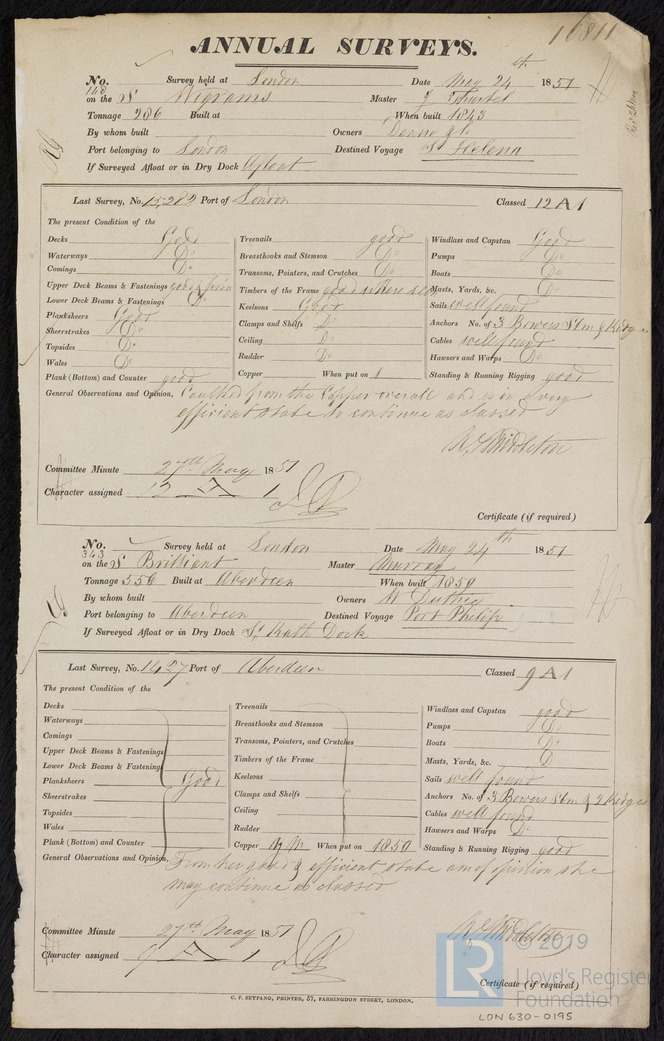 16811
ANNUAL SURVEYS.
No. 140 Survey held at London Date May 24th 1851
on the S Wigrams Master J
Tonnage 286 Built at When built 1843
By whom built Owners Denny &c
Port belonging to London Destined Voyage St Helena
If Surveyed Afloat or in Dry Dock Afloat
Last Survey, No. 15,282 Port of London Classed 12 A 1
The present Condition of the
Decks Good Treenails good Windlass and Capstan Good
Waterways Do Breasthooks and Stemson Do Pumps Do
Comings Do Transoms, Pointers, and Crutches Do Boats Do
Upper Deck Beams & Fastenings good Timbers of the Frame good where seen Masts, Yards, &c. Do
Lower Deck Beams & Fastenings Do Keelsons Good Sails well found
Planksheers Good Clamps and Shelfs Do Anchors No. of 3 Bowers Stm & Kedge
Sheerstrakes Do Ceiling Do Cables well found
Topsides Do Rudder Do Hawsers and Warps Do
Wales Do Copper When put on Standing & Running Rigging good
Plank (Bottom) and Counter good
General Observations and Opinion, Caulked from the Copper overall and is in a very
efficient state to continue as classed
Middleton
Committee Minute 27th May 1851
Character assigned 12 A 1
Certificate (if required)
No. 343 Survey held at London Date May 24th 1851
on the S Brilliant Master Murray
Tonnage 556 Built at Aberdeen When built 1850
By whom built Owners W Duthie
Port belonging to Aberdeen Destined Voyage Port Philip
If Surveyed Afloat or in Dry Dock St Kath Dock
Last Survey, No. 1427 Port of Aberdeen Classed 9 A 1
The present Condition of the
Decks Treenails Windlass and Capstan good
Waterways Breasthooks and Stemson Pumps Do
Comings Transoms, Pointers, and Crutches Boats Do
Upper Deck Beams & Fastenings Timbers of the Frame Masts, Yards, &c. D
Lower Deck Beams & Fastenings Keelsons Sails well found
Planksheers Good Clamps and Shelfs Anchors No. of 3 Bowers Stm & 2 Kedges
Sheerstrakes Ceiling Cables well found
Topsides Rudder Hawsers and Warps Do
Wales Copper YM When put on 1850 Standing & Running Rigging good
Plank (Bottom) and Counter
General Observations and Opinion, From her good & efficient state am of opinion she
may continue as classed
Middleton
Committee Minute 27th May 1851
Character assigned 9 A 1
Certificate (if required)
C. F. SEYFANG, PRINTER, 57, FARRINGDON STREET, LONDON,
LR © 2019
Lloyd's Register
Foundation
LON 630-0195